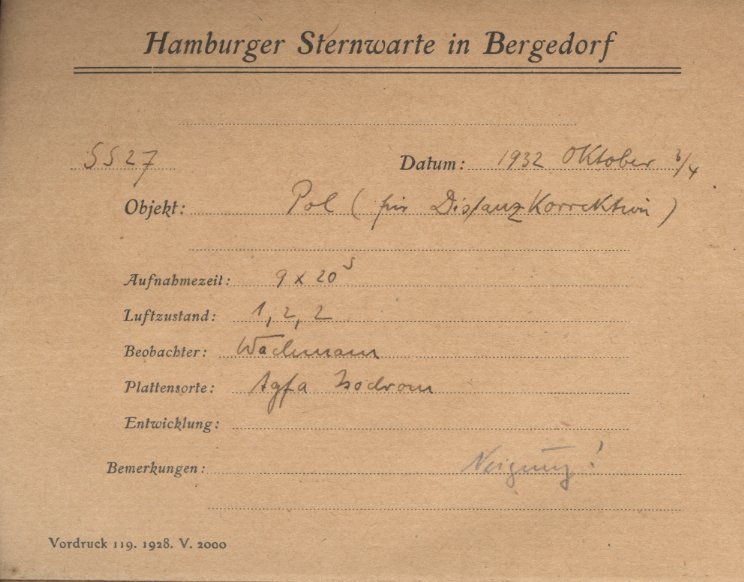 Hamburger Sternwarte in Bergedorf
SS27 Datum: 1932 Oktober 3/4
Objekt: Pol (für Distanz Korrektion)
Aufnahmezeit: 9 x 20s
Luftzustand: 1, 2, 2
Beobachter: Wachmann
Plattensorte: Agfa Isochrom
Entwicklung:
Bemerkungen: Neigung!
Vordruck 119. 1928. V. 2000